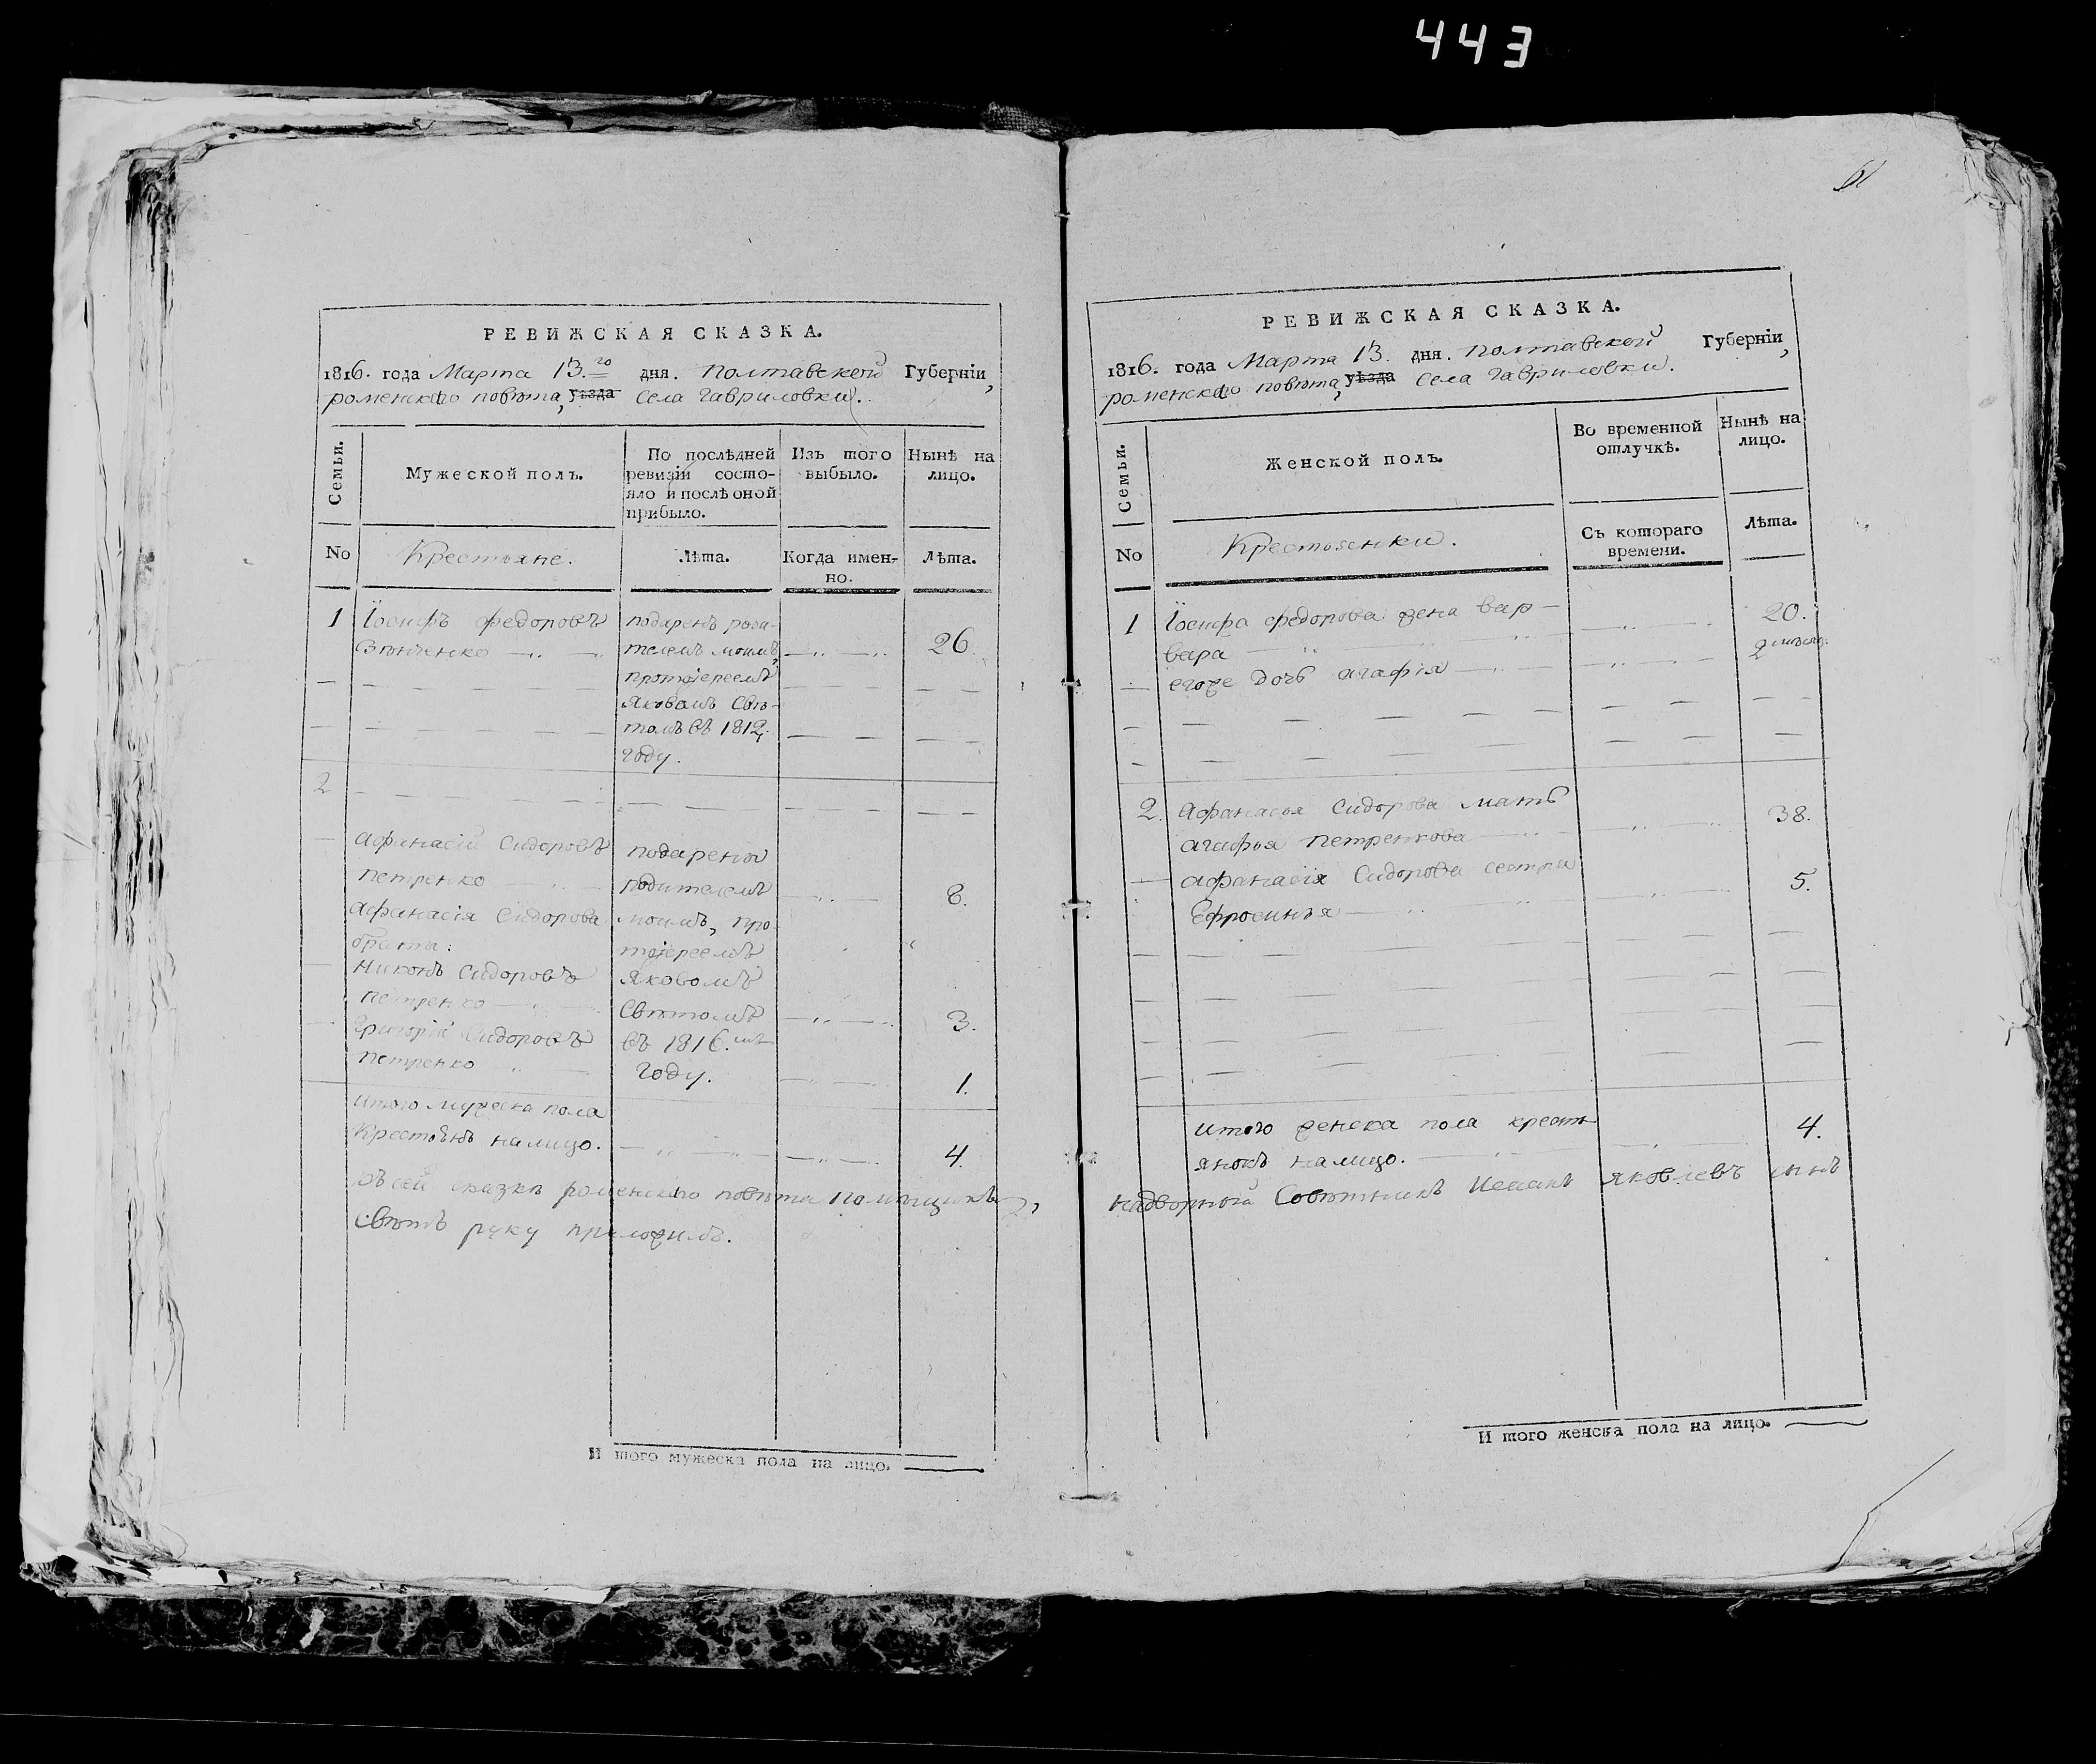 443
РЕВИЖСКАЯ СКАЗКА.
1816. года Марта 13.го дня. Полтавской Губерніи,
роменского повѣта, уѣзда села Гавриловки.
Семьи.
Мужеской полъ.
По послѣдней ревизіи состо-
яло и послѣ оной
прибыло.
Изъ того
выбыло.
Нынѣ на
лицо.
No
Крестьяне.
Лѣта.
Когда имен-
но.
Лѣта.
1 Іосифъ Федоровъ подаренъ роди-
телемъ моимъ, 26
протоіереемъ
Яковомъ Свѣ-
томъ въ 1812.
году.
2
Афанасій Сидоровъ подарены
Петренко родителемъ 8.
Афанасія Сидорова моимъ, про
браты: тоіереемъ
Никонъ Сидоровъ Яковомъ
Петренко Свѣтомъ 3.
Григорій Сидоровъ въ 1816.мъ
Петренко году. 1.
Итого мужеска пола
Крестьянъ налицо. 4.
Къ сей сказкѣ роменского повѣта помѣщикъ,
Свѣтъ руку приложилъ.
И того мужеска пола на лицо.
61
РЕВИЖСКАЯ СКАЗКА.
1816. года Марта 13. дня. Полтавской Губерніи,
роменского повѣта, уѣзда села Гавриловки.
Семьи.
Женской полъ.
Во временной
отлучкѣ.
Нынѣ на
лицо.
No
Крестьянки.
Съ котораго
времени.
Лѣта.
1 Іосифа Федорова жена Вар- 20.
вара
егоже дочь Агафія 2 мѣсяц.
2. Афанасья Сидорова мать 38.
Агафья Петренкова
Афанасія Сидорова сестра 5.
Ефросинья
Итого женска пола кресть 4.
янокъ налицо.
надворный Совѣтникъ Исаакъ Яковлевъ сынъ
И того женска пола на лицо.